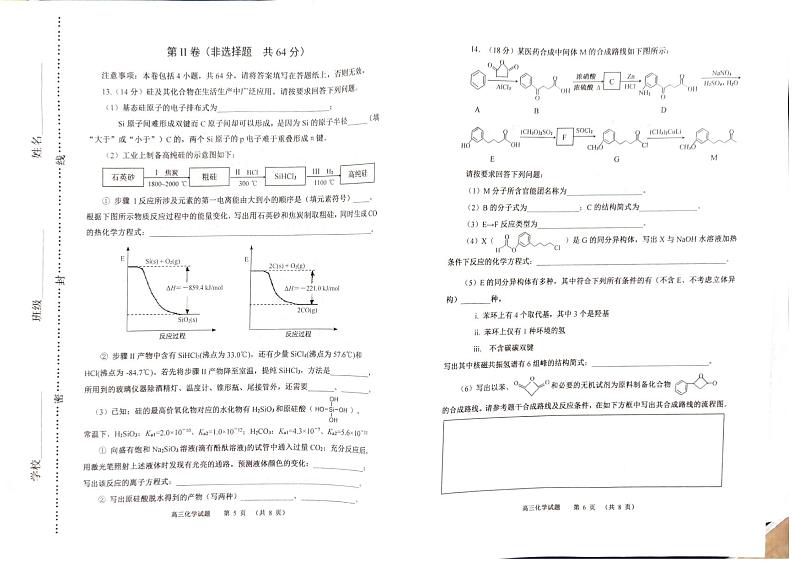 第 II 卷（非选择题 共 64 分）
注意事项：本卷包括 4 小题，共 64 分，请将答案填写在答题纸上，否则无效。
13.（14 分）硅及其化合物在生活生产中广泛应用。请按要求回答下列问题。
（1）基态硅原子的电子排布式为____________________；
Si 原子间难形成双键而 C 原子间却可以形成，是因为 Si 的原子半径____（填
“大于”或“小于”）C 的，两个 Si 原子的 p 电子难于重叠形成 π 键。
（2）工业上制备高纯硅的示意图如下：
石英砂 I 焦炭 1800~2000 ℃ 粗硅 II HCl 300 ℃ SiHCl₃ III H₂ 1100 ℃ 高纯硅
① 步骤 I 反应所涉及元素的第一电离能由大到小的顺序是（填元素符号）____。
根据下图所示物质反应过程中的能量变化，写出用石英砂和焦炭制取粗硅，同时生成 CO
的热化学方程式：____________________。
E Si(s) + O₂(g) ΔH＝-859.4 kJ/mol SiO₂(s) 反应过程
E 2C(s) + O₂(g) ΔH＝-221.0 kJ/mol 2CO(g) 反应过程
② 步骤 II 产物中含有 SiHCl₃(沸点为 33.0℃)，还有少量 SiCl₄(沸点为 57.6℃)和
HCl(沸点为 -84.7℃)。若先将步骤 II 产物降至室温，提纯 SiHCl₃，方法是________，
所用到的玻璃仪器除酒精灯、温度计、锥形瓶、尾接管外，还需要______、______。
（3）已知：硅的最高价氧化物对应的水化物有 H₂SiO₃ 和原硅酸（HO-Si-OH OH OH），
常温下，H₂SiO₃：Kₐ₁=2.0×10⁻¹⁰、Kₐ₂=1.0×10⁻¹²；H₂CO₃：Kₐ₁=4.3×10⁻⁷、Kₐ₂=5.6×10⁻¹¹
① 向盛有饱和 Na₂SiO₃ 溶液(滴有酚酞溶液)的试管中通入过量 CO₂；充分反应后，
用激光笔照射上述液体时发现有光亮的通路。预测液体颜色的变化：____________；
写出该反应的离子方程式：____________________。
② 写出原硅酸脱水得到的产物（写两种）____________、____________。
高三化学试题 第 5 页 （共 8 页）
姓名
班级
学校
线
封
密
14.（18 分）某医药合成中间体 M 的合成路线如下图所示：
A AlCl₃ B 浓硝酸 浓硫酸 Δ C Zn HCl D NaNO₂ H₂SO₄, H₂O
E (CH₃O)₂SO₂ F SOCl₂ G (CH₃)₂CuLi M
请按要求回答下列问题：
（1）M 分子所含官能团名称为____________。
（2）B 的分子式为________；C 的结构简式为____________。
（3）E→F 反应类型为____________________。
（4）X（ ）是 G 的同分异构体，写出 X 与 NaOH 水溶液加热
条件下反应的化学方程式：____________________。
（5）E 的同分异构体有多种，其中符合下列所有条件的有（不含 E、不考虑立体异
构）______种，
i. 苯环上有 4 个取代基，其中 3 个是羟基
ii. 苯环上仅有 1 种环境的氢
iii. 不含碳碳双键
写出其中核磁共振氢谱有 6 组峰的结构简式：____________________。
（6）写出以苯、 和必要的无机试剂为原料制备化合物
的合成路线。请参考题干合成路线及反应条件，在如下方框中写出其合成路线的流程图。
高三化学试题 第 6 页 （共 8 页）